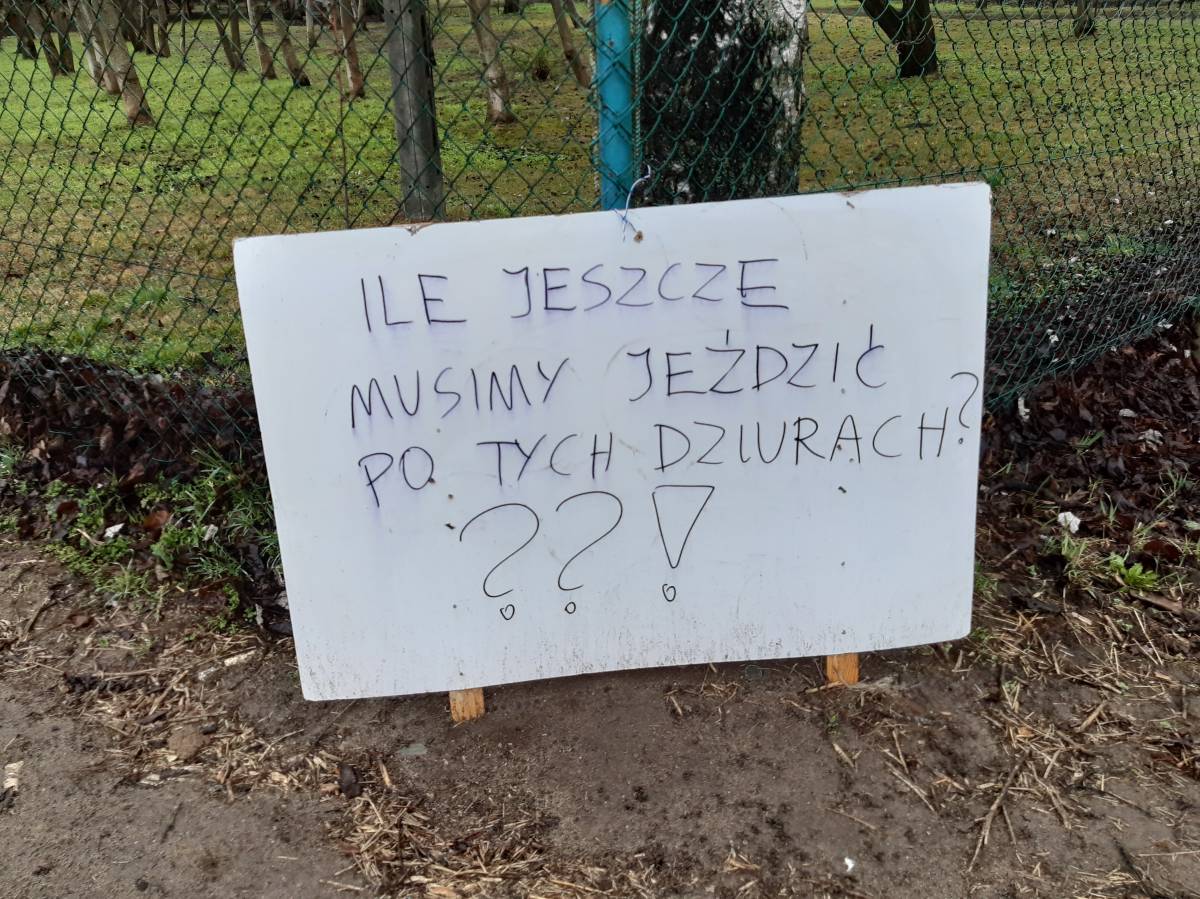 ILE JESZCZE
MUSIMY JEŹDZIĆ
PO TYCH DZIURACH?
??!